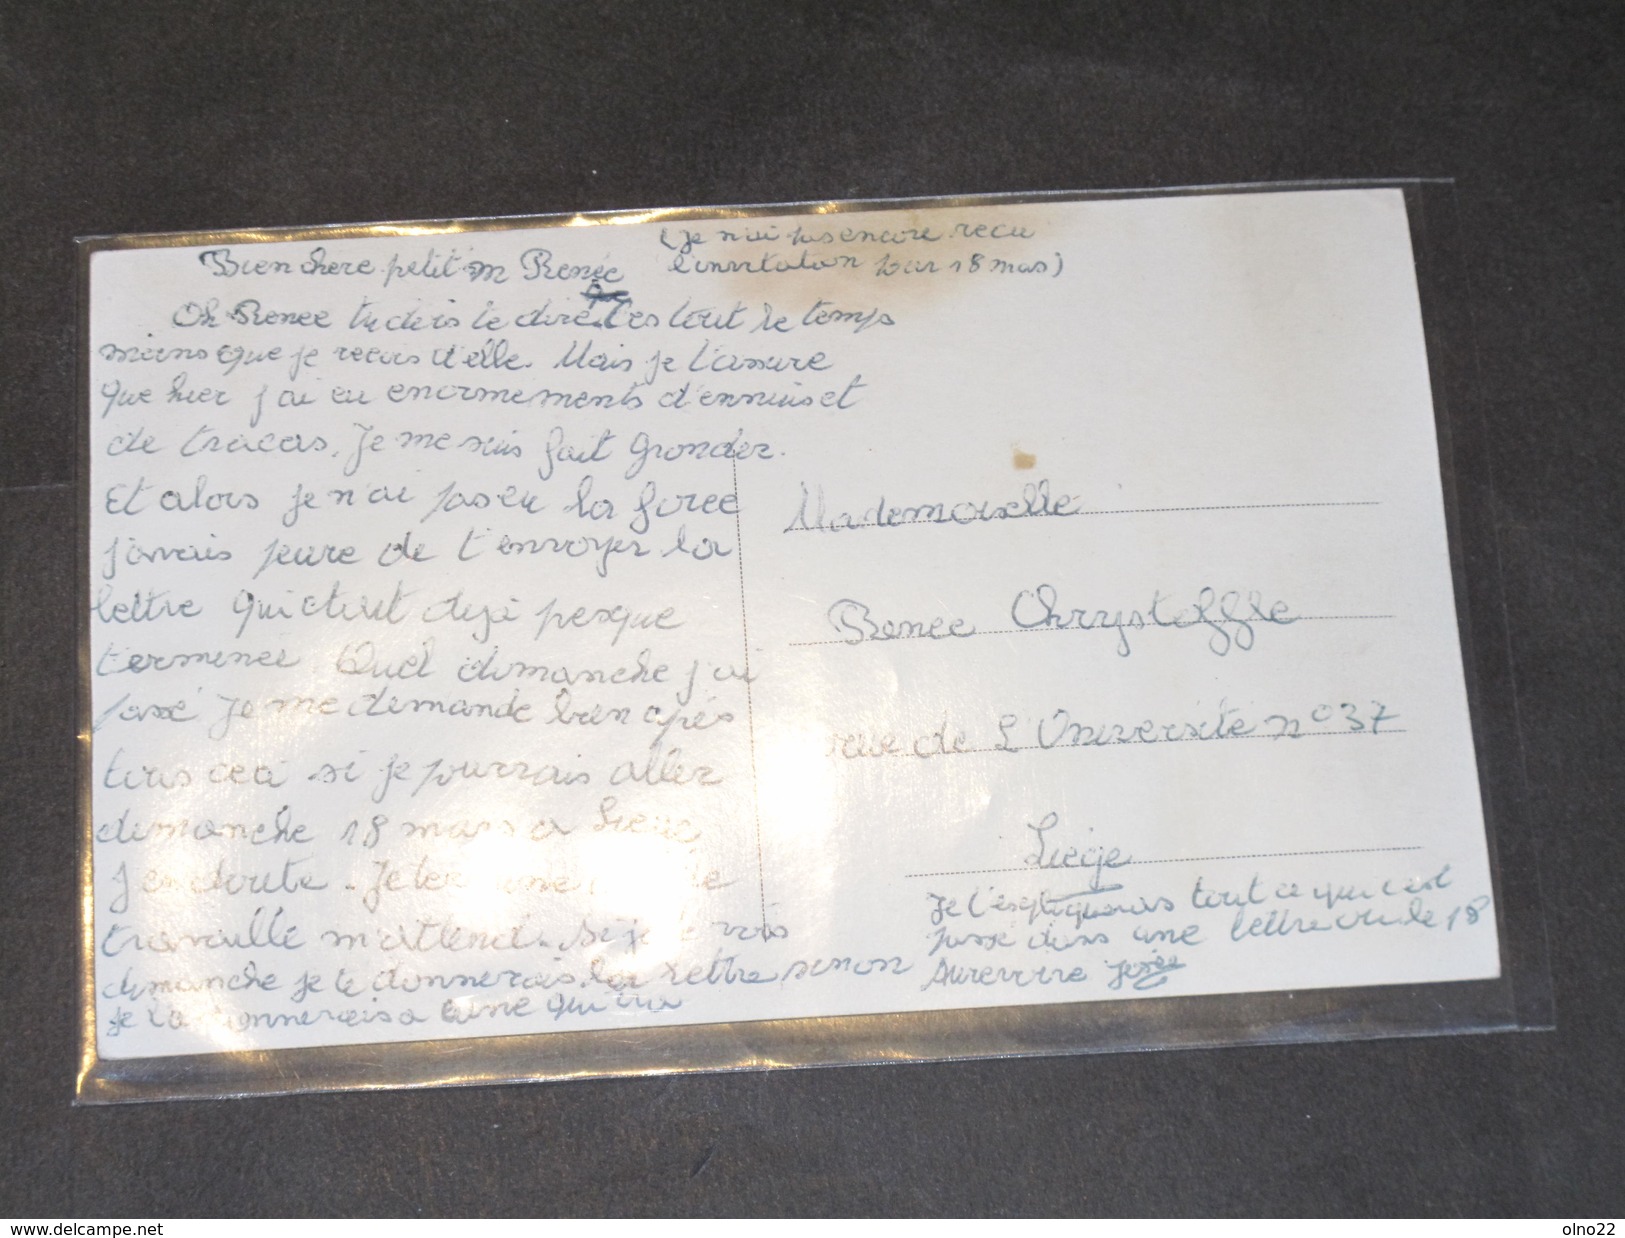 (je n'ai pas encore recu
l'invitation pour 18 mars)
Bien chere petit m Renée
Oh Renee tu dois te dire t'es tout le temps
moins que je recois d'elle. Mais je t'assure
que hier j'ai eu enormements d'ennuis et
de tracas. Je me suis fait gronder.
Et alors je n'ai pas eu la force
j'avais peure de t'envoyer la
lettre qui etait deja presque
terminee. Quel dimanche j'ai
passé je me demande bien apés
tous ceci si je pourrais aller
dimanche 18 mars a
J'en doute. Je
travaille m'attend. Si je te vois
dimanche je te donnerais la lettre sinon
je la donnerais a une qui ira
Mademoiselle
Renee Chrysteffle
rue de L'Université n° 37
Liège
Je t'espliquerais tout ce qui c'est
passé dans une lettre ou le 18
Aurevoire
www.delcampe.net
olno22